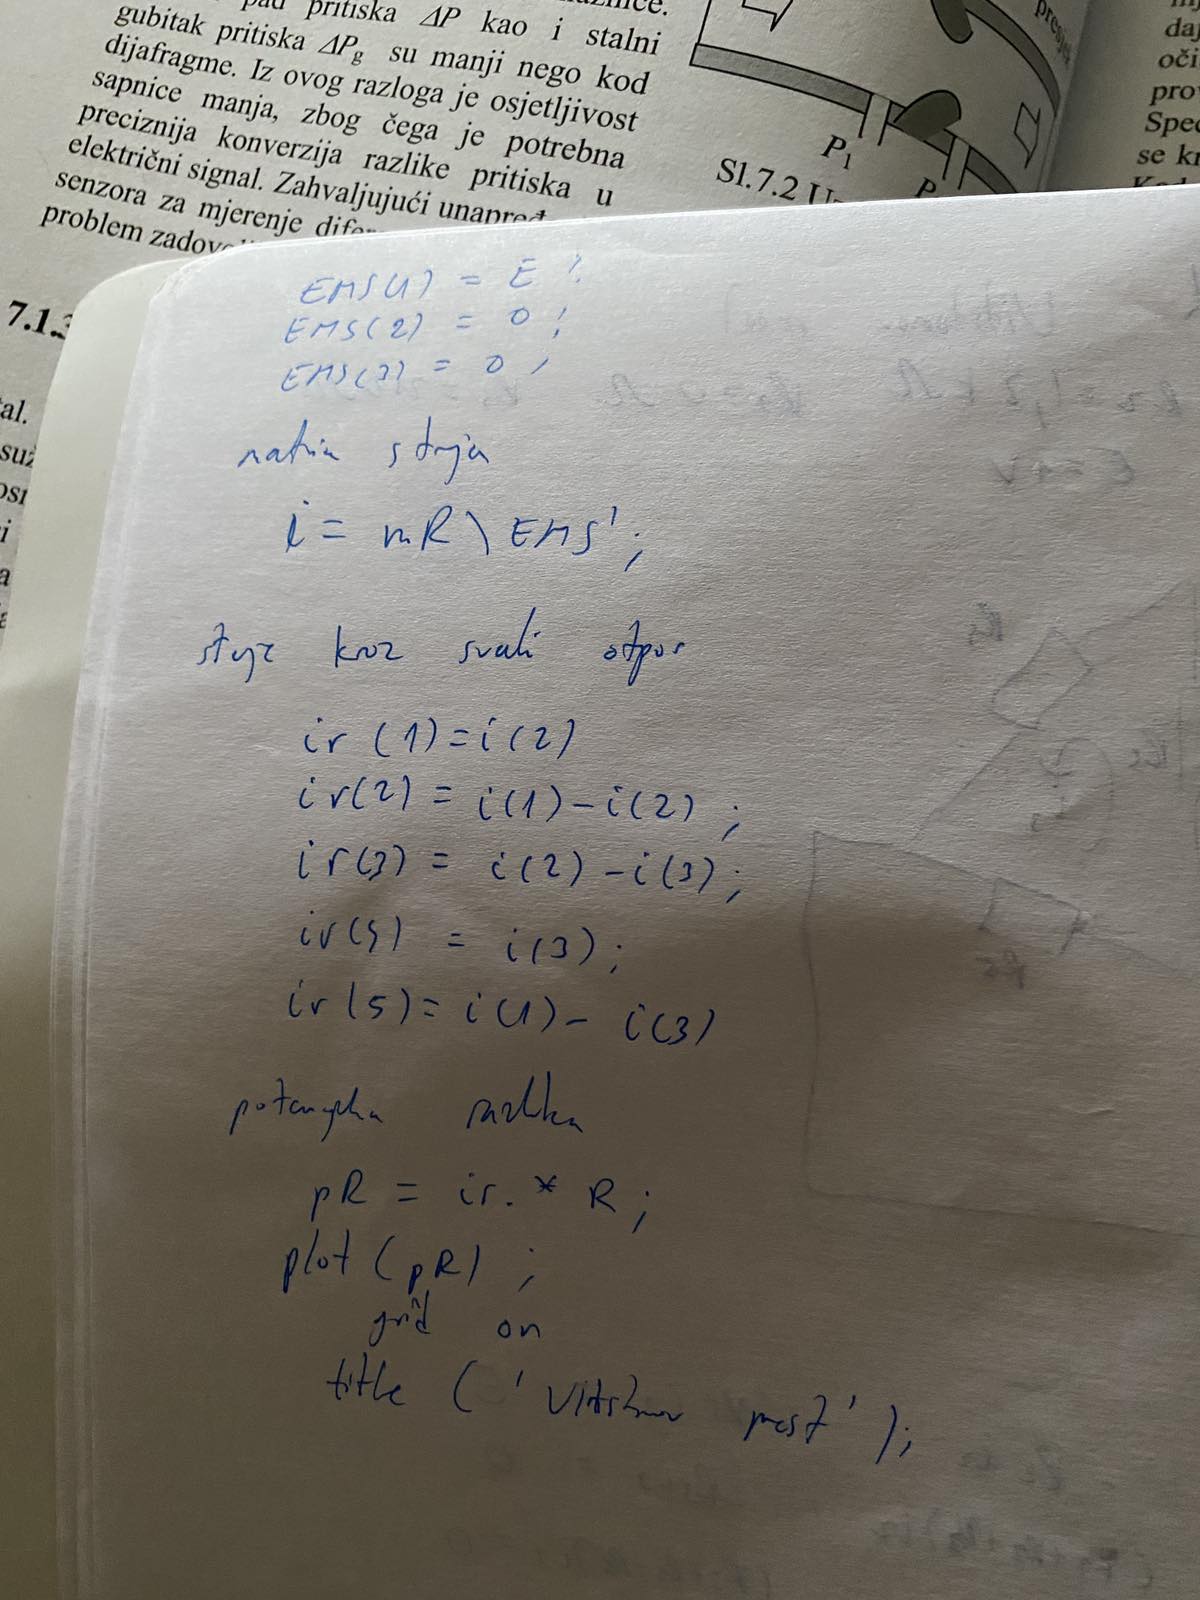 pad pritiska ΔP kao i stalni
gubitak pritiska ΔPg su manji nego kod
dijafragme. Iz ovog razloga je osjetljivost
sapnice manja, zbog čega je potrebna
preciznija konverzija razlike pritiska u
električni signal. Zahvaljujući unapređ
senzora za mjerenje difer
problem zadovo
P1
P
Sl.7.2 U
presjek
daj
oči
pro
Spec
se k
7.1.3
tal.
suž
osn
i
a
EMS(1) = E ;
EMS(2) = 0 ;
EMS(3) = 0 ;
struja
i = mR \ EMS' ;
struje kroz svaki otpor
ir (1)=i(2)
ir(2) = i(1)-i(2) ;
ir(3) = i(2)-i(3) ;
ir(4) = i(3) ;
ir(5)= i(1)- i(3)
razlika
pR = ir. * R ;
plot (pR) ;
grid on
title ( ' Vitstonov most ' ) ;